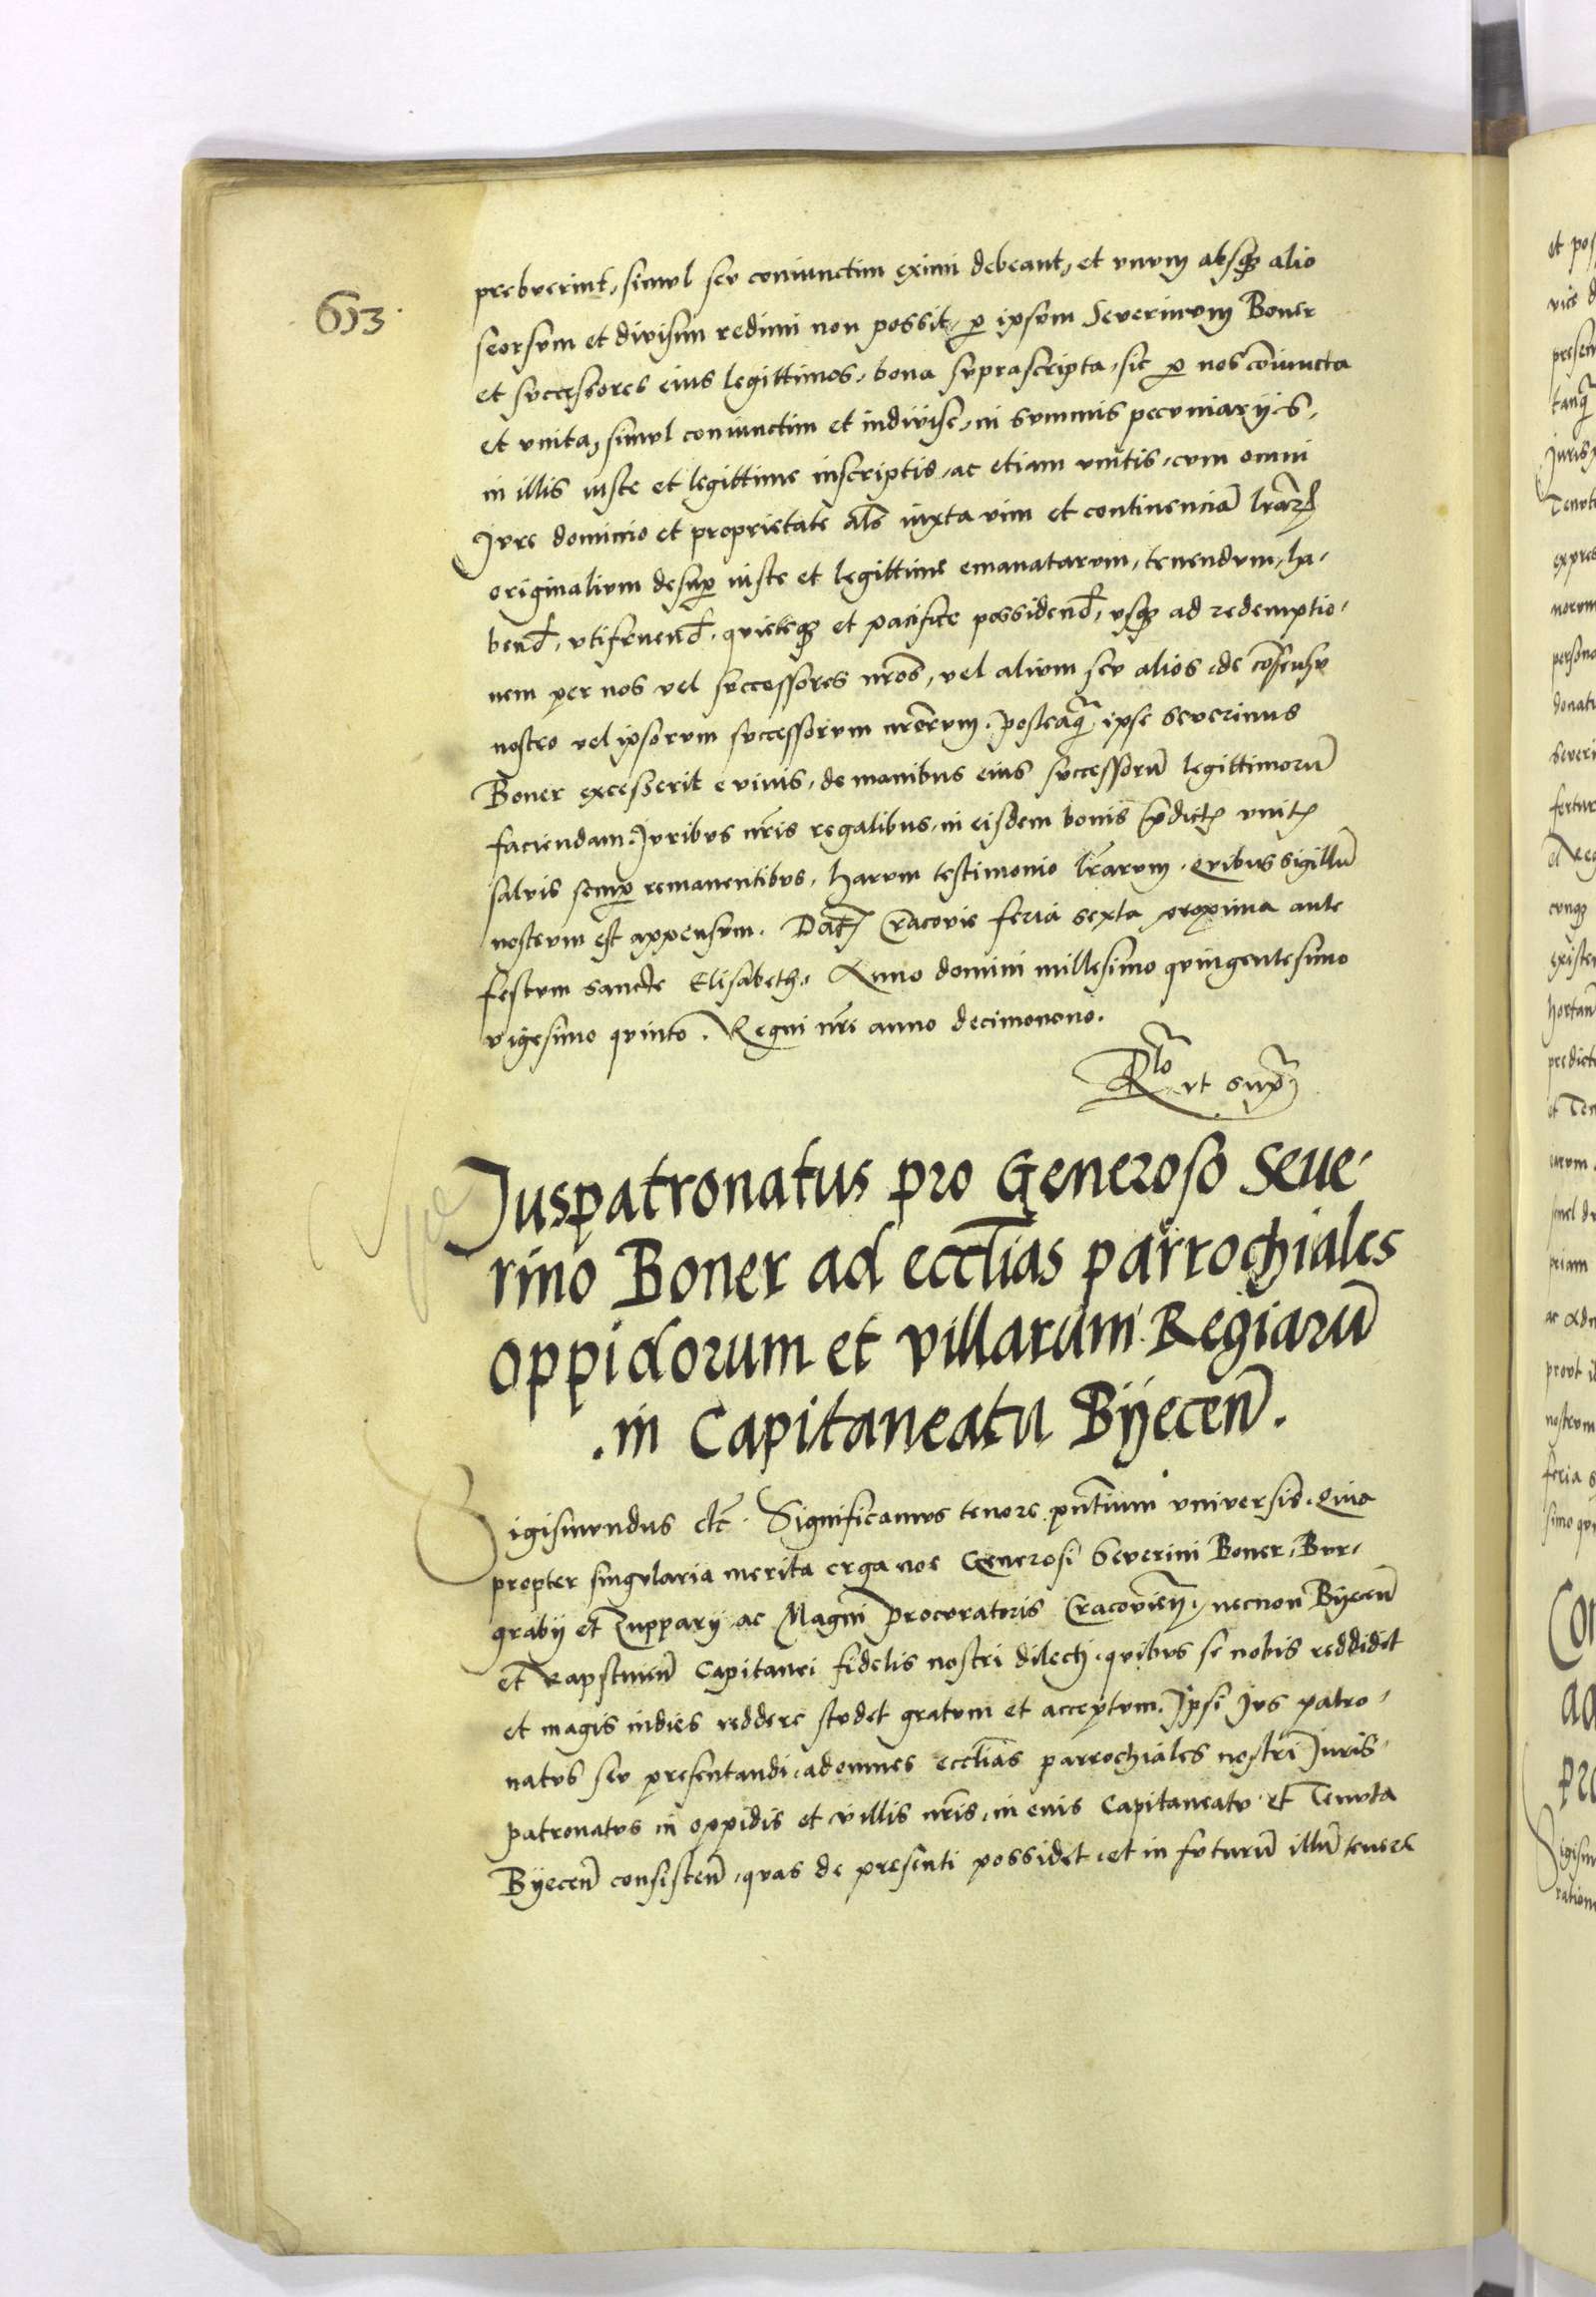 653
prebuerint, simul seu coniunctim eximi debeant, et unum absq3 alio
seorsum et divisim redimi non possit, p ipsum Severinum Boner
et successores eius legittimos, bona suprascripta, sic p nos coniuncta
et unita, simul coniunctim et indivise, in summis pecuniarijs,
in illis iuste et legittime inscriptis, ac etiam unitis, cum omni
Jure dominio et proprietate als iuxta vim et continenciā lrārz
originalium desup iuste et legittime emanatarum, tenendum, ha-
bend, utifruend, quieteq3 et pacifice possidend, usq3 ad redemptio-
nem per nos vel successores nros, vel alium seu alios de cōsensu
nostro vel ipsorum successorum nrorum. posteaq̄ ipse Severinus
Boner excesserit e vivis, de manibus eius successorū legittimorū
faciendam. Juribus nris regalibus, in eisdem bonis p̄dict unit
salvis semp remanentibus, harum testimonio lrārum. quibus sigillū
nostrum est appensum. Dat Cracovie feria sexta proxima ante
festum sancte Elisabeth. Anno domini millesimo quingentesimo
vigesimo quinto. Regni nri anno decimonono.
Rlo ut supra
Juspatronatus pro Generoso Seue-
rino Boner ad ecclias parrochiales
oppidorum et villarum Regiarū
.in Capitaneatu Bijecen̄.
Sigismundus etc. Significamus tenore pn̄tium universis. Quia
propter singularia merita erga nos Generosi Severini Boner, Bur-
grabij et Zupparij ac Magni procuratoris Cracovien, necnon Bijecen̄
et Rapstinen̄ Capitanei fidelis nostri dilecti, quibus se nobis reddidit
et magis indies reddere studet gratum et acceptum. Ipsi Jus patro-
natus seu presentandi, ad omnes ecclias parrochiales nostri Juris-
patronatus in oppidis et villis nris, in eius Capitaneatu et Tenuta
Bijecen̄ consisten̄, quas de presenti possidet, et in futurū illū tenere